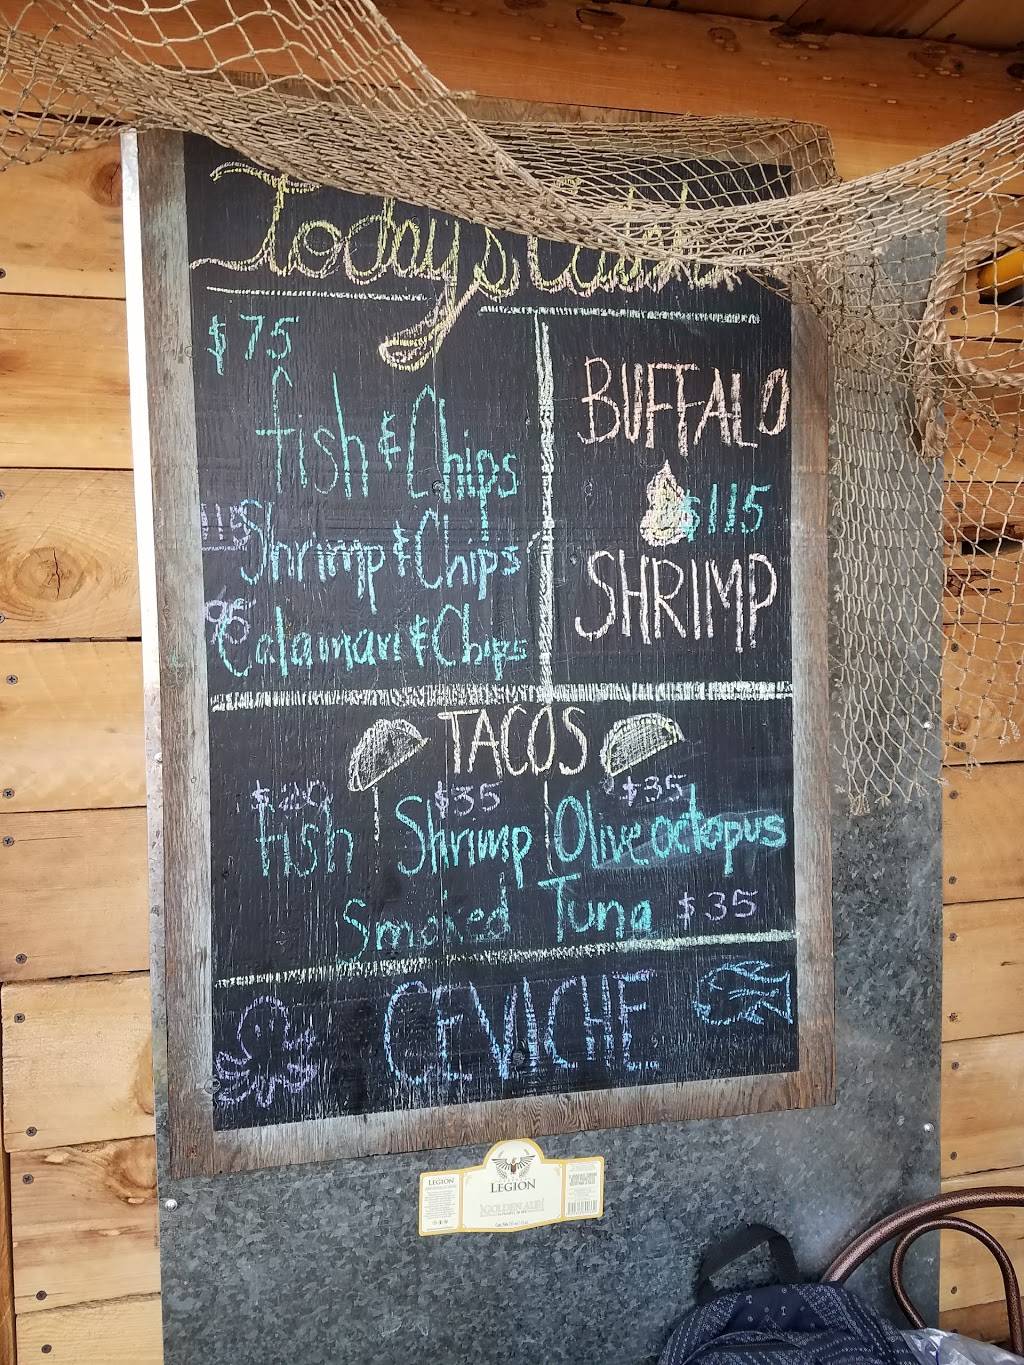 Today's Catch
$75
fish & Chips
115 Shrimp & Chips
95 Calamari & Chips
BUFFALO
$115
SHRIMP
TACOS
$35 $35
fish Shrimp Olive octopus
Smoked Tuna $35
CEVICHE
LEGION
LEGION